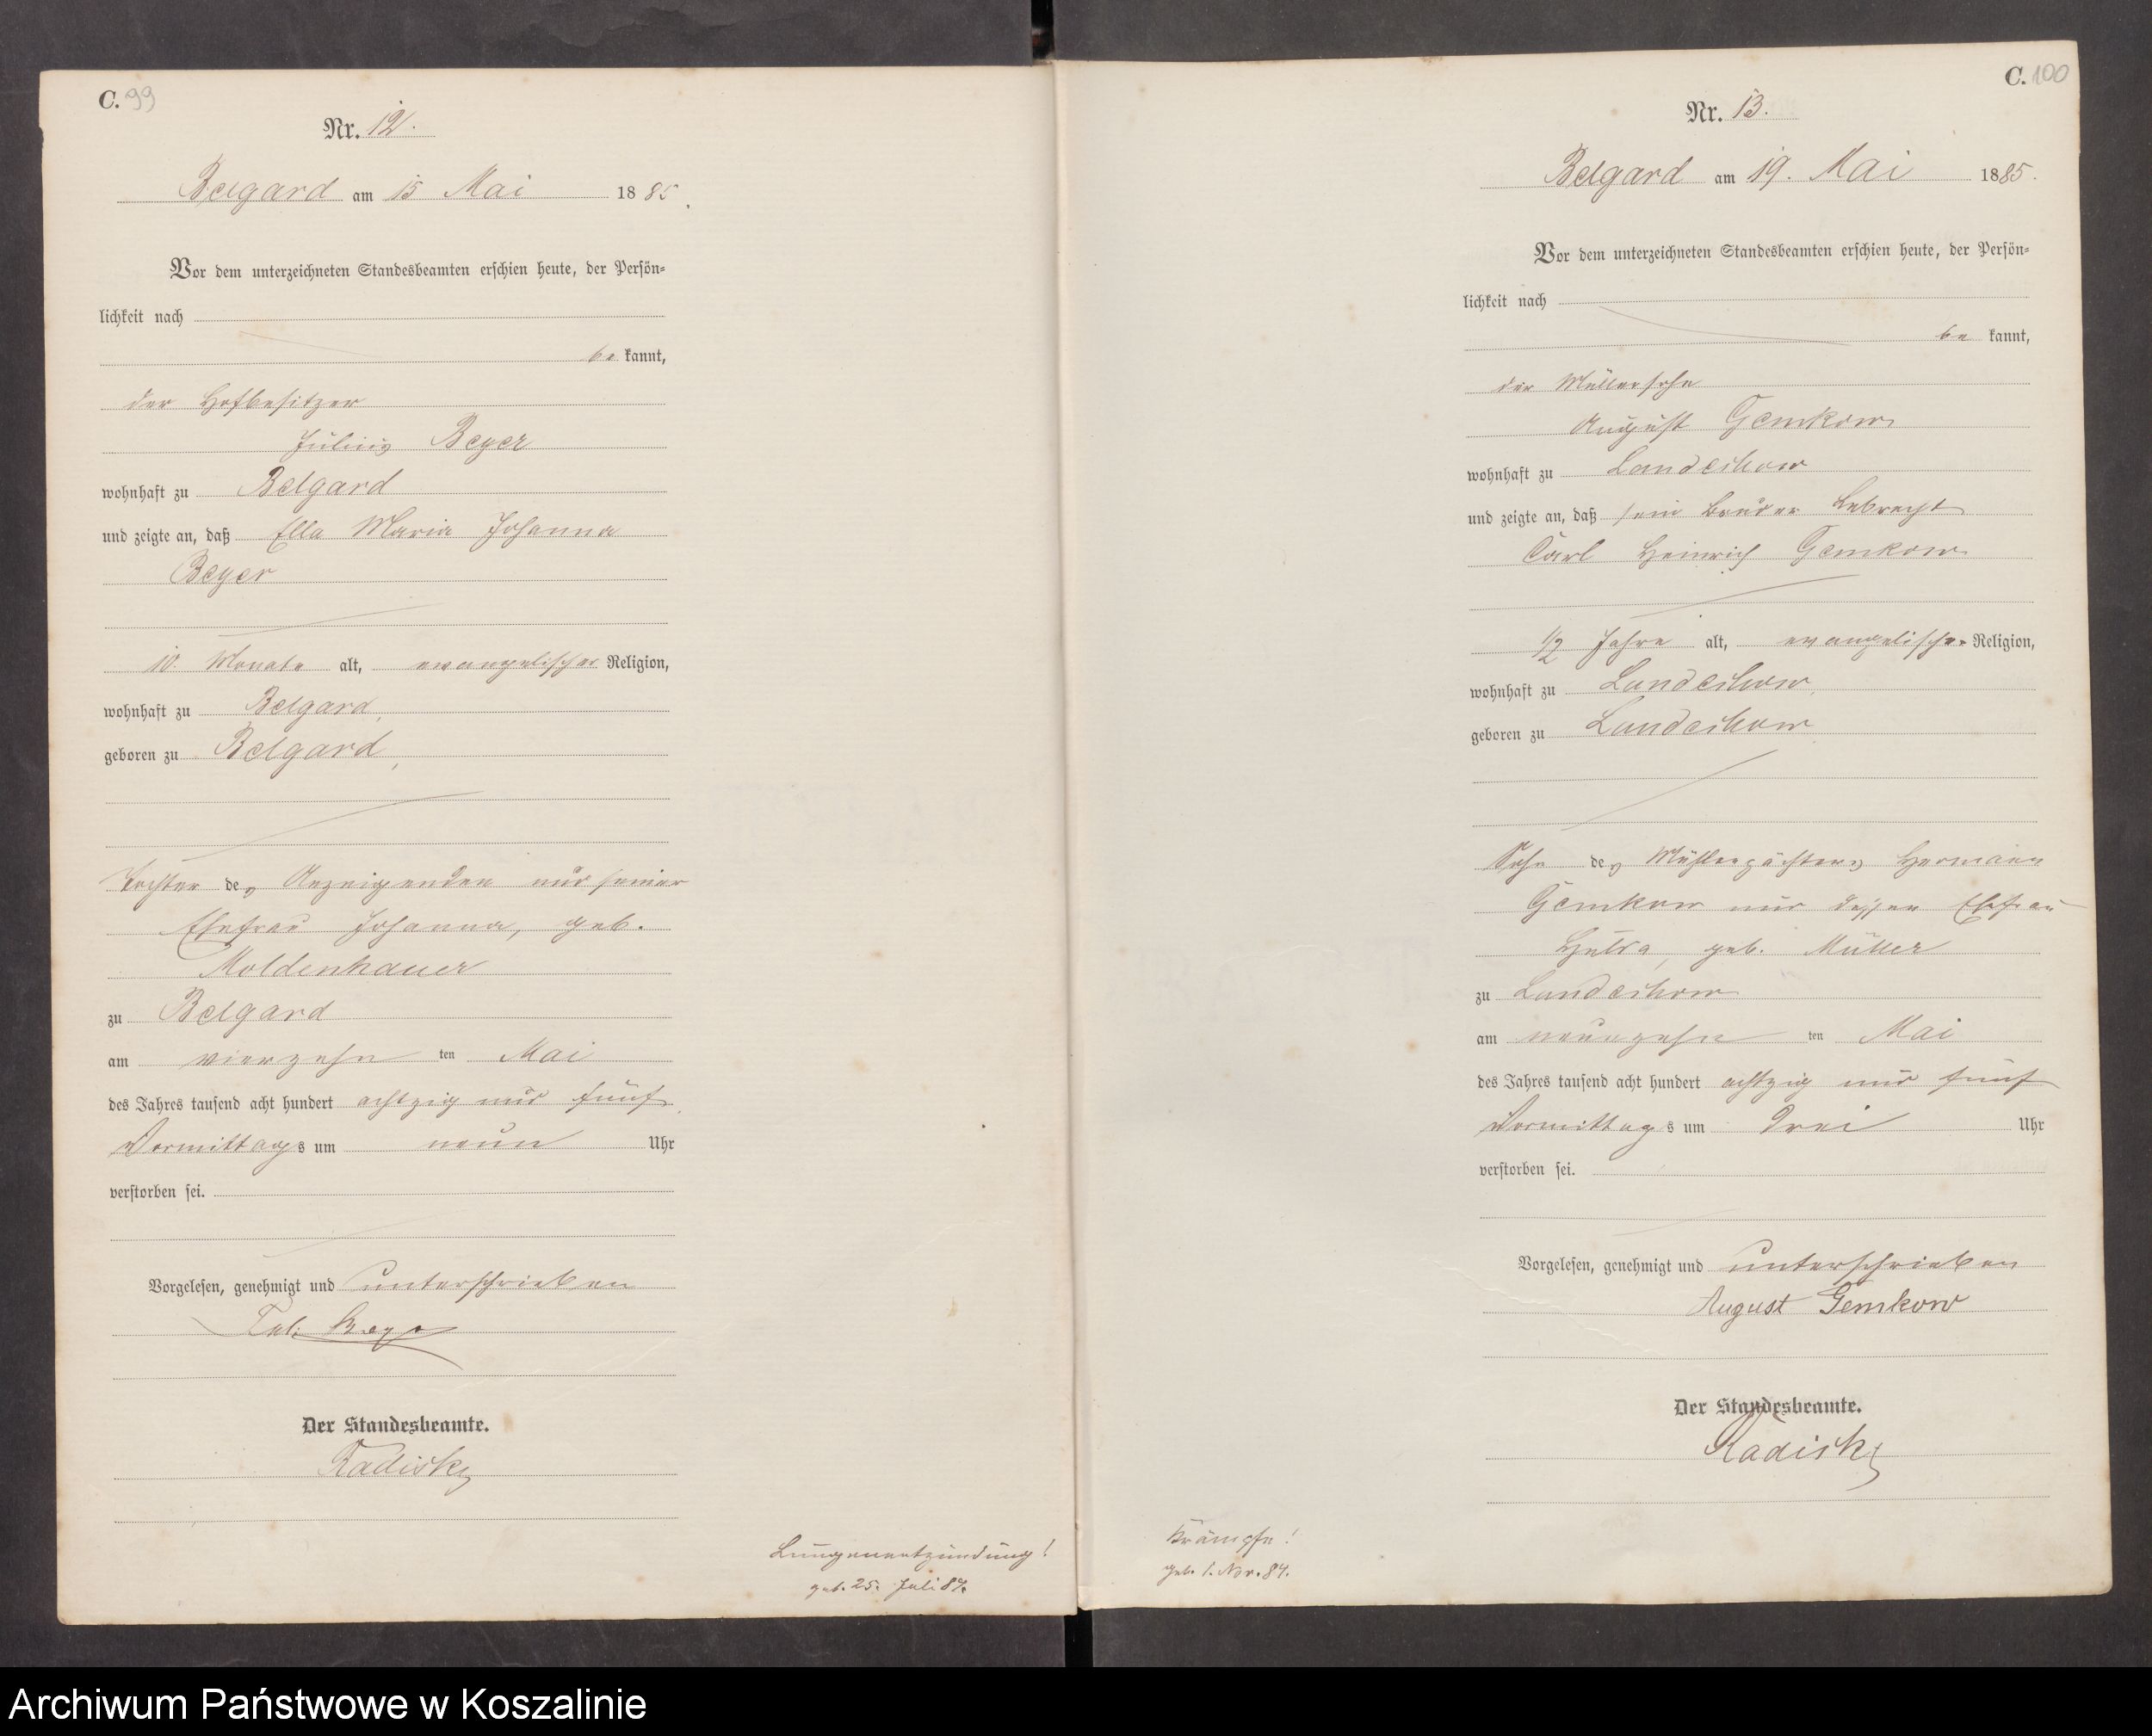 C. 99
Nr. 12.
Belgard am 15 Mai 1885.
Vor dem unterzeichneten Standesbeamten erschien heute, der Persön-
lichkeit nach
be kannt,
der Hofbesitzer
Julius Beyer
wohnhaft zu Belgard
und zeigte an, daß Ella Maria Johanna
Beyer
10 Monate alt, evangelischer Religion,
wohnhaft zu Belgard,
geboren zu Belgard,
Tochter des Anzeigenden und seiner
Ehefrau Johanna, geb.
Moldenhauer
zu Belgard
am vierzehn ten Mai
des Jahres tausend acht hundert achtzig und fünf
Vormittags um neun Uhr
verstorben sei.
Vorgelesen, genehmigt und unterschrieben
Jul. Beyer
Der Standesbeamte.
Radiske
Lungenentzündung!
geb. 25. Juli 84.
C. 100
Nr. 13.
Belgard am 19. Mai 1885.
Vor dem unterzeichneten Standesbeamten erschien heute, der Persön-
lichkeit nach
be kannt,
der Müllersohn
August Gemkow
wohnhaft zu Landechow
und zeigte an, daß sein Bruder Lebrecht
Carl Heinrich Gemkow
1/2 Jahre alt, evangelischer Religion,
wohnhaft zu Landechow,
geboren zu Landechow
Sohn des Mühlenpächters Hermann
Gemkow und dessen Ehefrau
geb. Müller
zu Landechow
am neunzehn ten Mai
des Jahres tausend acht hundert achtzig und fünf
Vormittags um drei Uhr
verstorben sei.
Vorgelesen, genehmigt und unterschrieben
August Gemkow
Der Standesbeamte.
Radiske
Krämpfe!
geb. 1. Nov. 84.
Archiwum Państwowe w Koszalinie